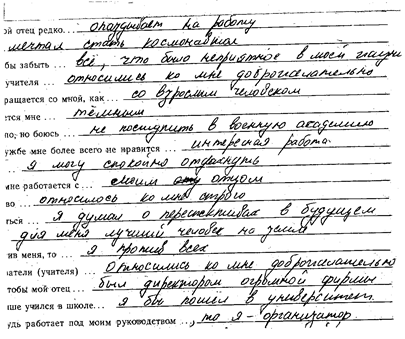 ой отец редко... опаздывает на работу
мечтал стать космонавтом
бы забыть ... всё, что было неприятное в моей жизни
учителя ... относились ко мне доброжелательно
ращается со мной, как ... со взрослым человеком
ется мне ... тёмным
по, но боюсь ... не поступить в военную академию
ужбе мне более всего не нравится ... интересная работа
... я могу спокойно отдохнуть
мне работается с ... моим отцом
во ... относилось ко мне строго
ться ... я думал о перспективах в будущем
для меня лучший человек на земле
ив меня, то ... я против всех
ватели (учителя) ... относились ко мне доброжелательно
тобы мой отец ... был директором огромной фирмы
ше учился в школе... я бы пошёл в университет
удь работает под моим руководством ..., то я - организатор